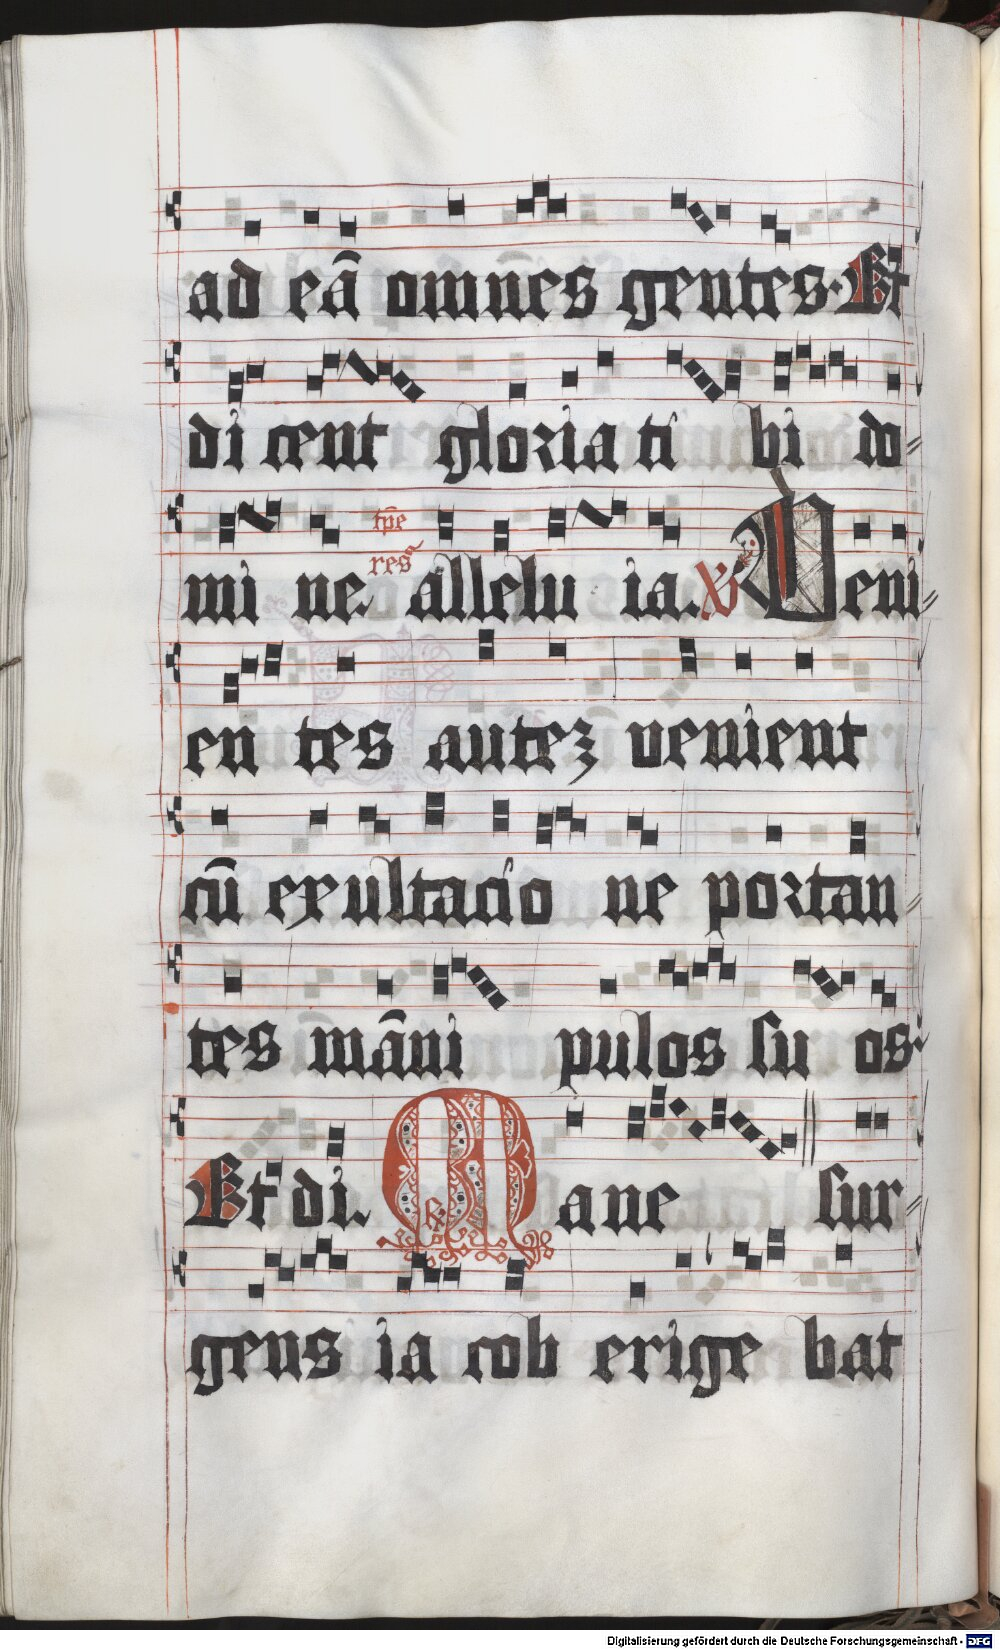 ad eā omnes gentes· Et
di cent gloria ti bi do⸗
mi ne. tp̄e resᵃ allelu ia. ℣ Veni⸗
en tes autez venient
cū exultacio ne portan⸗
tes māni pulos su os·
Et di. ℟ Mane sur⸗
gens ia cob erige bat
Digitalisierung gefördert durch die Deutsche Forschungsgemeinschaft - DFG